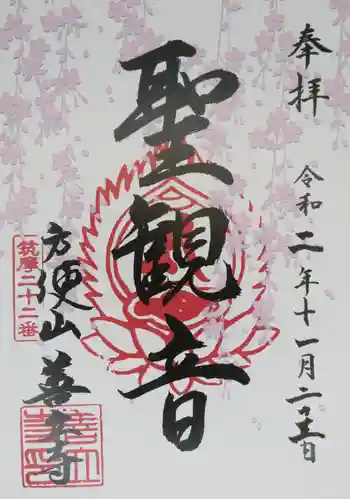 奉拝
令和二年十一月二十三日
聖観音
筑摩二十二番
方便山
善立寺